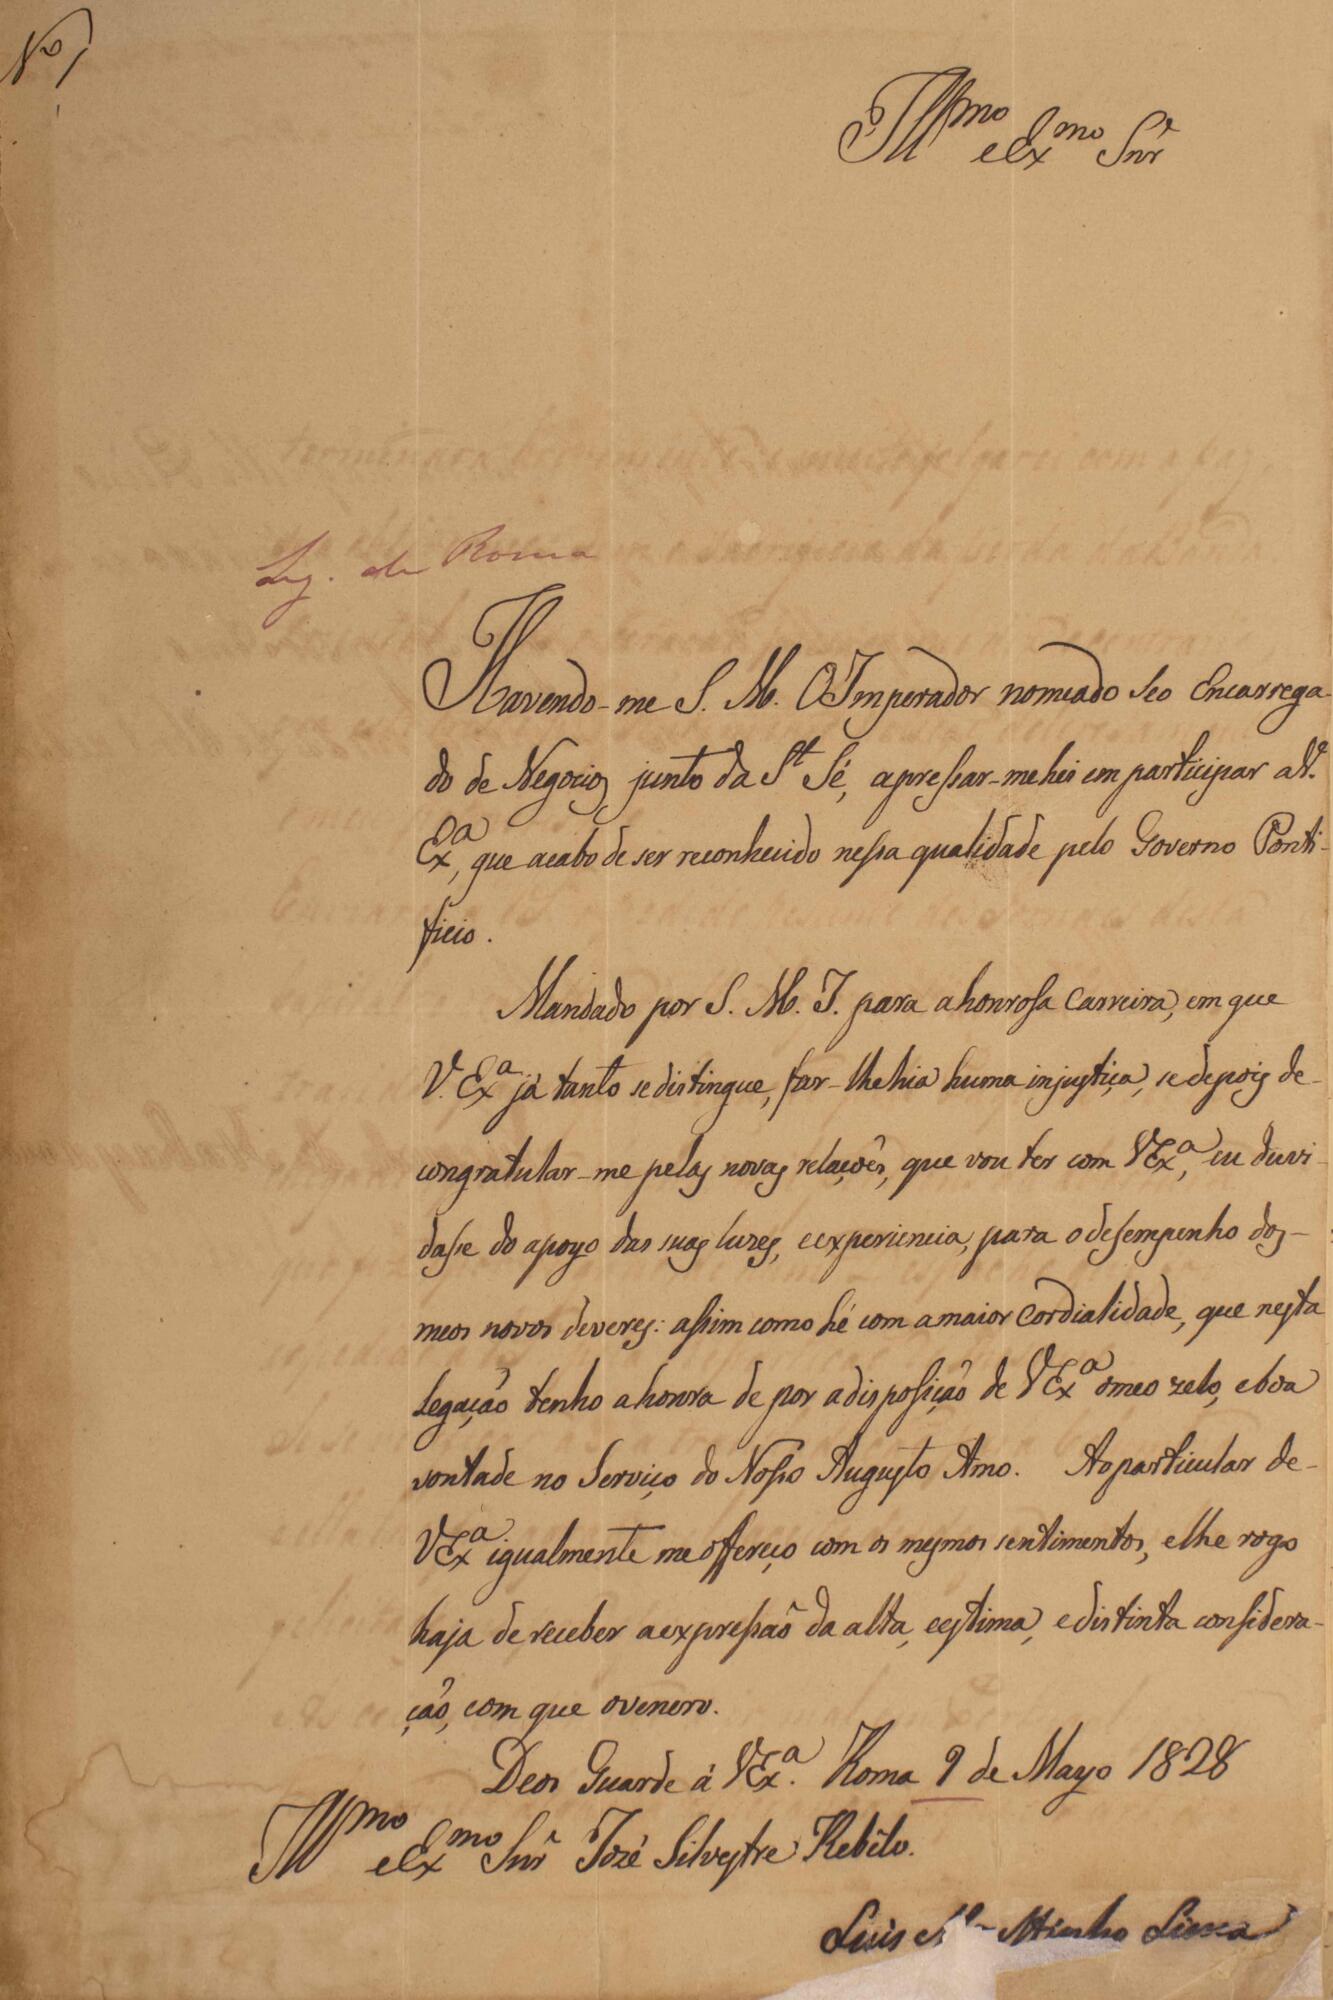 Nº 1
Illmo e Exmo Snr
Leg. de Roma
Havendo-me S. M. O Imperador nomeado seo Encarrega-
do de Negocios junto da St Sé, apressar-mehei em participar a V.
Exª, que acabo de ser reconhecido nessa qualidade pelo Governo Ponti-
ficio.
Mandado por S. M. I. para a honrosa Carreira, em que
V. Exª já tanto se distingue, far-lhehia huma injustiça, se depois de-
congratular-me pelas novas relações, que vou ter com VExª, eu duvi-
dasse do apoyo das suas luzes, e experiencia, para o desempenho dos-
meos novos deveres: assim como hé com a maior Cordialidade, que nesta
Legação tenho a honra de por a disposição de VExª o meo zelo, e boa
vontade no Serviço do Nosso Augusto Amo. Ao particular de-
VExª igualmente me offereço com os mesmos sentimentos, e lhe rogo
haja de receber a expressaõ da alta, e estima, e distinta considera-
ção, com que o venero.
Deos Guarde á VExª. Roma 9 de Mayo 1828
Illmo e Exmo Snr José Silvestre Rebêlo.
Luis